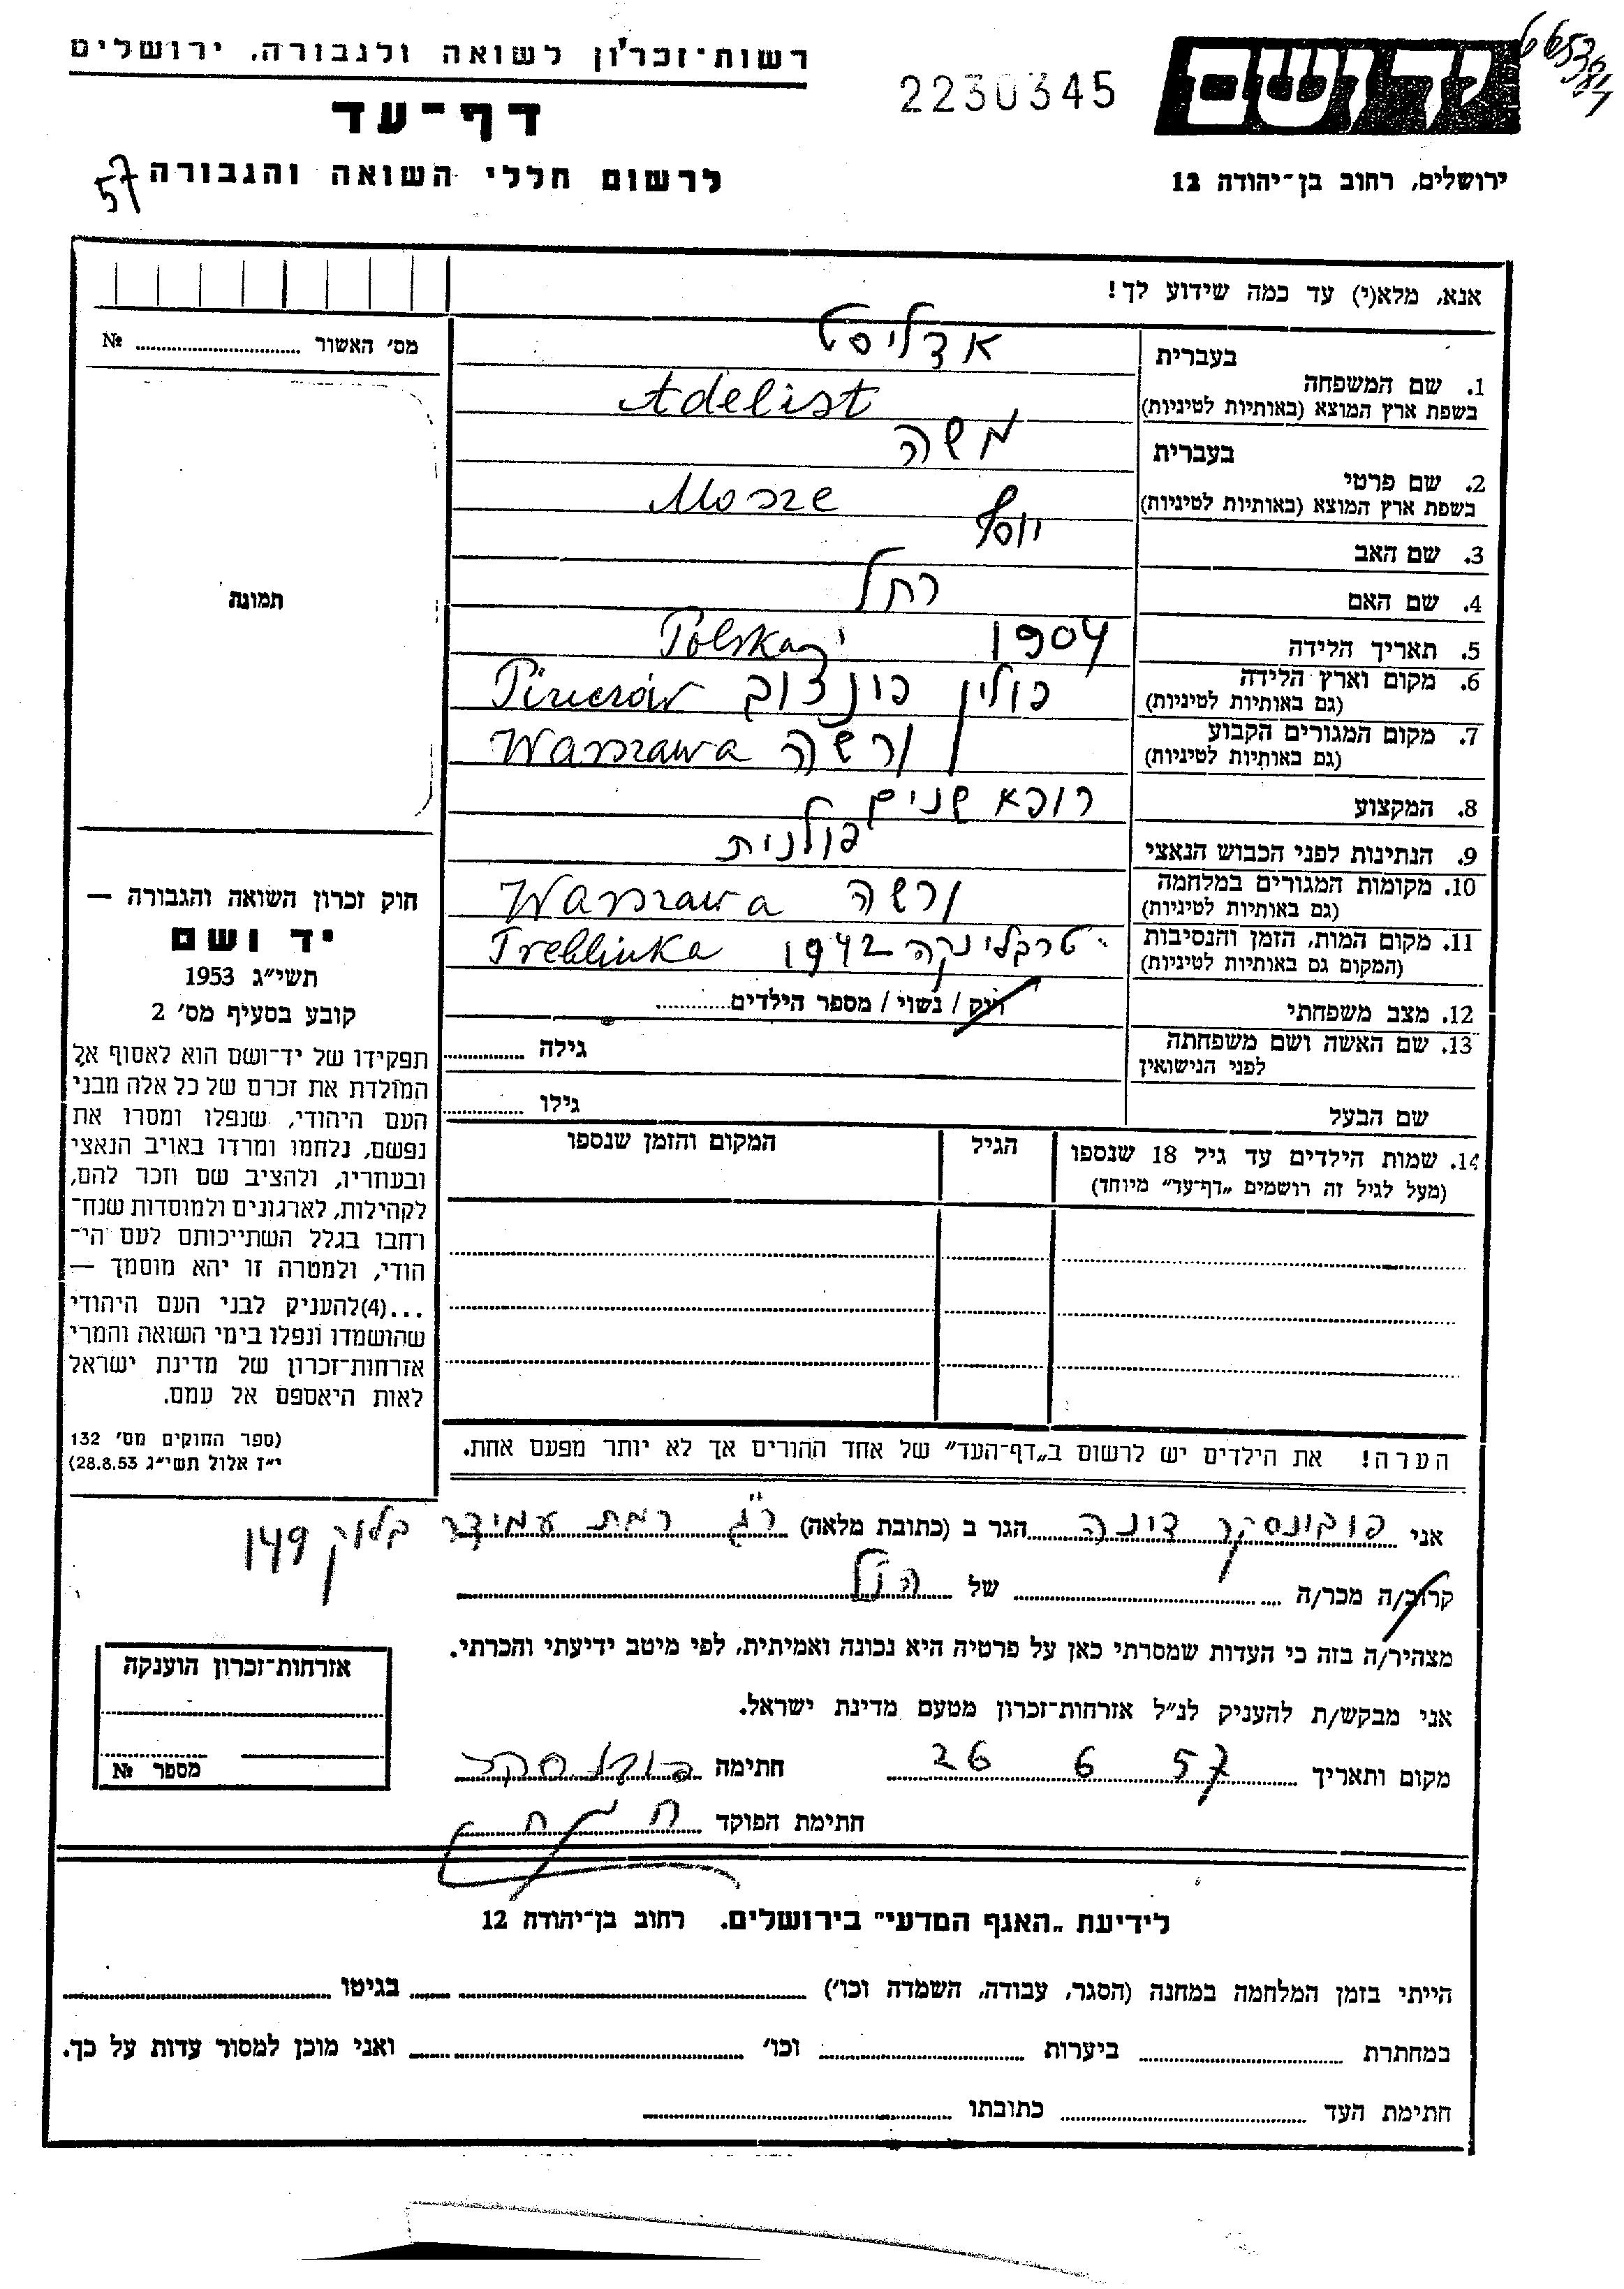 רשות-זכרון לשואה ולגבורה, ירושלים
דף-עד
לרשום חללי השואה והגבורה
57
2230345
יד ושם
ירושלים, רחוב בן-יהודה 12
אנא, מלא(י) עד כמה שידוע לך!
מס׳ האשור № ..........
תמונה
1. שם המשפחה בעברית אדליסט
בשפת ארץ המוצא (באותיות לטיניות) Adelist
2. שם פרטי בעברית משה
בשפת ארץ המוצא (באותיות לטיניות) Mosze
3. שם האב יוסף
4. שם האם רחל
5. תאריך הלידה 1904
6. מקום וארץ הלידה (גם באותיות לטיניות) פולין פונצוב Polska
7. מקום המגורים הקבוע (גם באותיות לטיניות) ורשה Warszawa
8. המקצוע רופא שנים
9. הנתינות לפני הכבוש הנאצי פולנית
10. מקומות המגורים במלחמה (גם באותיות לטיניות) ורשה Warszawa
11. מקום המות, הזמן והנסיבות (המקום גם באותיות לטיניות) טרבלינקה 1942 Treblinka
12. מצב משפחתי רוק / נשוי / מספר הילדים..........
13. שם האשה ושם משפחתה לפני הנישואין גילה ..........
שם הבעל גילו ..........
14. שמות הילדים עד גיל 18 שנספו הגיל המקום והזמן שנספו
(מעל לגיל זה רושמים „דף-עד" מיוחד)
הערה! את הילדים יש לרשום ב„דף-העד" של אחד ההורים אך לא יותר מפעם אחת.
חוק זכרון השואה והגבורה —
יד ושם
תשי״ג 1953
קובע בסעיף מס׳ 2
תפקידו של יד-ושם הוא לאסוף אל
המולדת את זכרם של כל אלה מבני
העם היהודי, שנפלו ומסרו את
נפשם, נלחמו ומרדו באויב הנאצי
ובעוזריו, ולהציב שם וזכר להם,
לקהילות, לארגונים ולמוסדות שנח-
רחבו בגלל השתייכותם לעם הי-
הודי, ולמטרה זו יהא מוסמך —
...(4)להעניק לבני העם היהודי
שהושמדו ונפלו בימי השואה והמרי
אזרחות-זכרון של מדינת ישראל
לאות היאספם אל עמם.
(ספר החוקים מס׳ 132
י״ז אלול תשי״ג 28.8.53)
אני פובינסקר דינה הגר ב (כתובת מלאה) ר״ג רמת עמידר בלוק 149
קרוב/ה מכר/ה .......... של הנ״ל
מצהיר/ה בזה כי העדות שמסרתי כאן על פרטיה היא נכונה ואמיתית, לפי מיטב ידיעתי והכרתי.
אני מבקש/ת להעניק לנ״ל אזרחות-זכרון מטעם מדינת ישראל.
מקום ותאריך 26 6 57 חתימה
חתימת הפוקד
אזרחות-זכרון הוענקה
מספר №
לידיעת „האגף המדעי" בירושלים, רחוב בן-יהודה 12
הייתי בזמן המלחמה במחנה (הסגר, עבודה, השמדה וכו׳) .......... בגיטו ..........
במחתרת .......... ביערות .......... וכו׳ .......... ואני מוכן למסור עדות על כך.
חתימת העד .......... כתובתו ..........